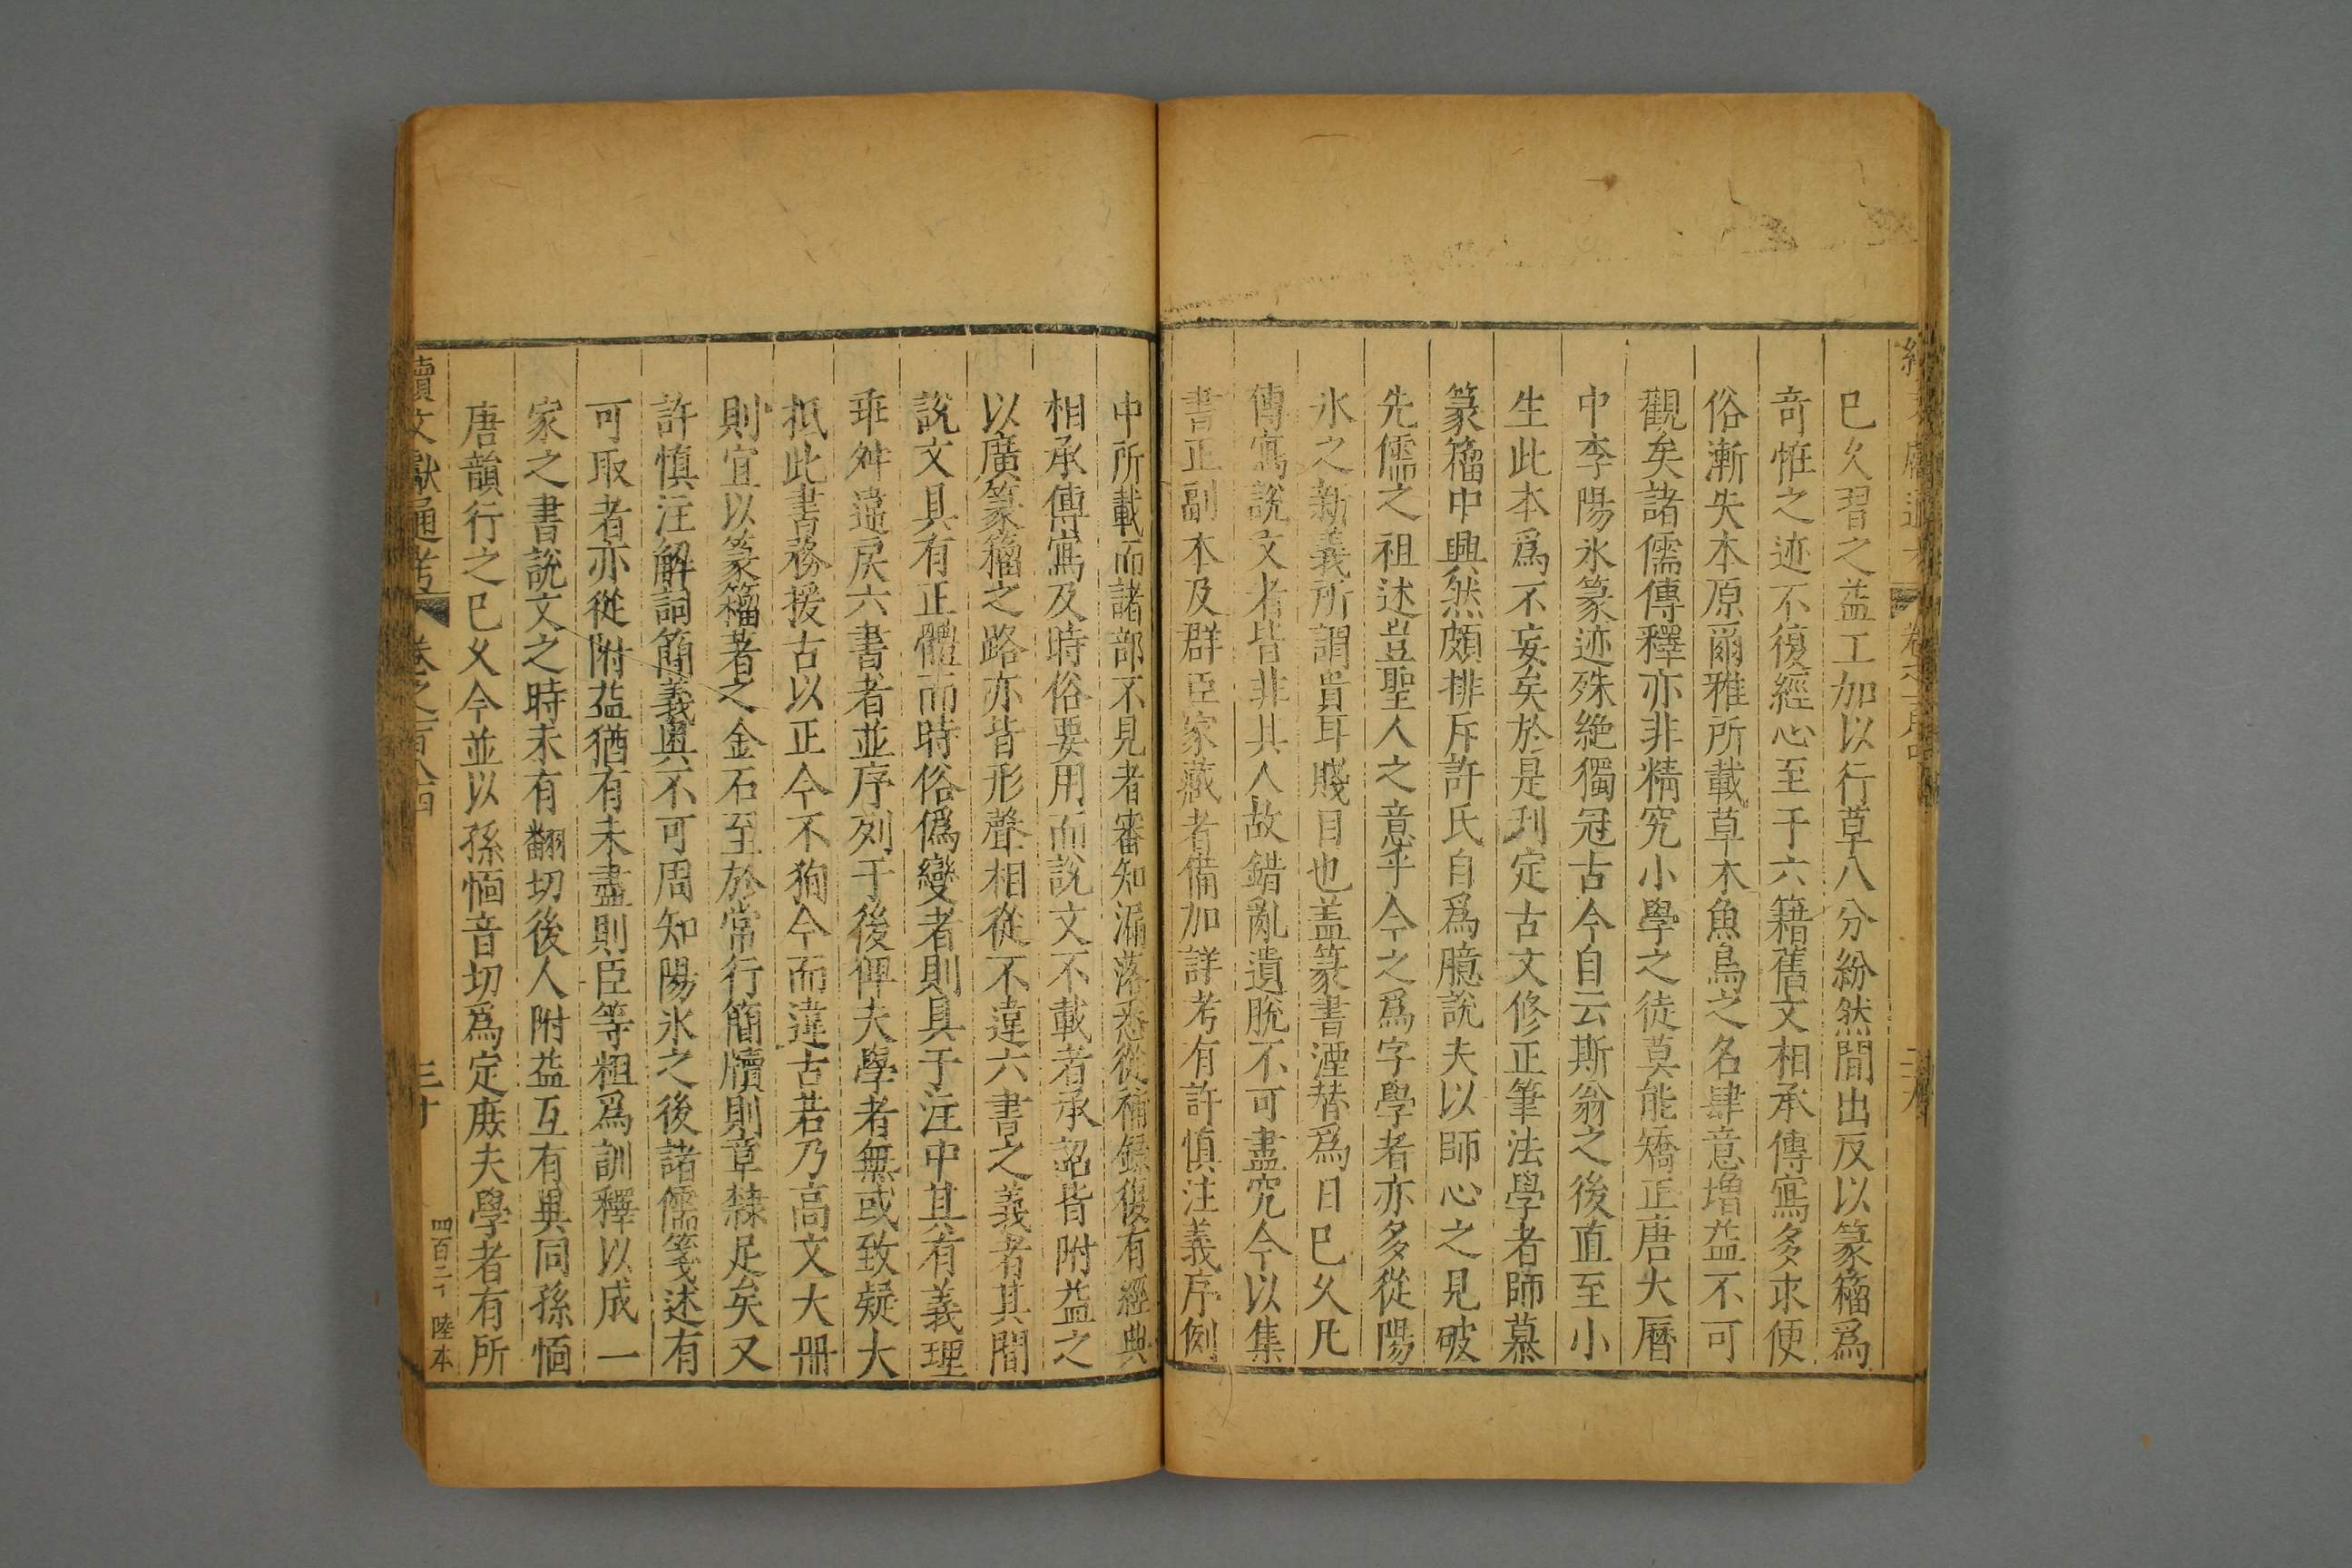 巳乆習之益工加以行草八分紛然間出反以篆籀爲
奇恠之迹不復經心至于六籍舊文相承傳寫多求便
俗漸失本原爾雅所載草木魚鳥之名肆意増益不可
觀矣諸儒傳釋亦非精究小學之徒莫能矯正唐大曆
中李陽氷篆迹殊絶獨冠古今自云斯翁之後直至小
生此本爲不妄矣於是刋定古文修正筆法學者師慕
篆籀中興然頗排斥許氏自爲臆說夫以師心之見破
先儒之祖述豈聖人之意乎今之爲字學者亦多從陽
氷之新義所謂貴耳賤目也盖篆書湮替爲日巳乆凡
傳寫說文者皆非其人故錯亂遺脫不可盡究今以集
書正副本及群臣家藏者備加詳考有許慎注義序例
中所載而諸部不見者審知漏落悉從補録復有經典
相承傳寫及時俗要用而說文不載者承詔皆附益之
以廣篆籀之路亦皆形聲相從不違六書之義者其間
說文具有正體而時俗僞變者則具于注中其有義理
乖舛違戾六書者並序列于後俾夫學者無或致疑大
抵此書務援古以正今不狥今而違古若乃高文大冊
則宜以篆籀著之金石至於常行簡牘則章隷足矣又
許慎注解詞簡義奥不可周知陽氷之後諸儒箋述有
可取者亦從附益猶有未盡則臣等粗爲訓釋以成一
家之書說文之時未有翻切後人附益互有異同孫愐
唐韻行之巳乆今並以孫愐音切爲定庻夫學者有所
續文獻通考 卷之一百八四 三十
四百二十 陸本